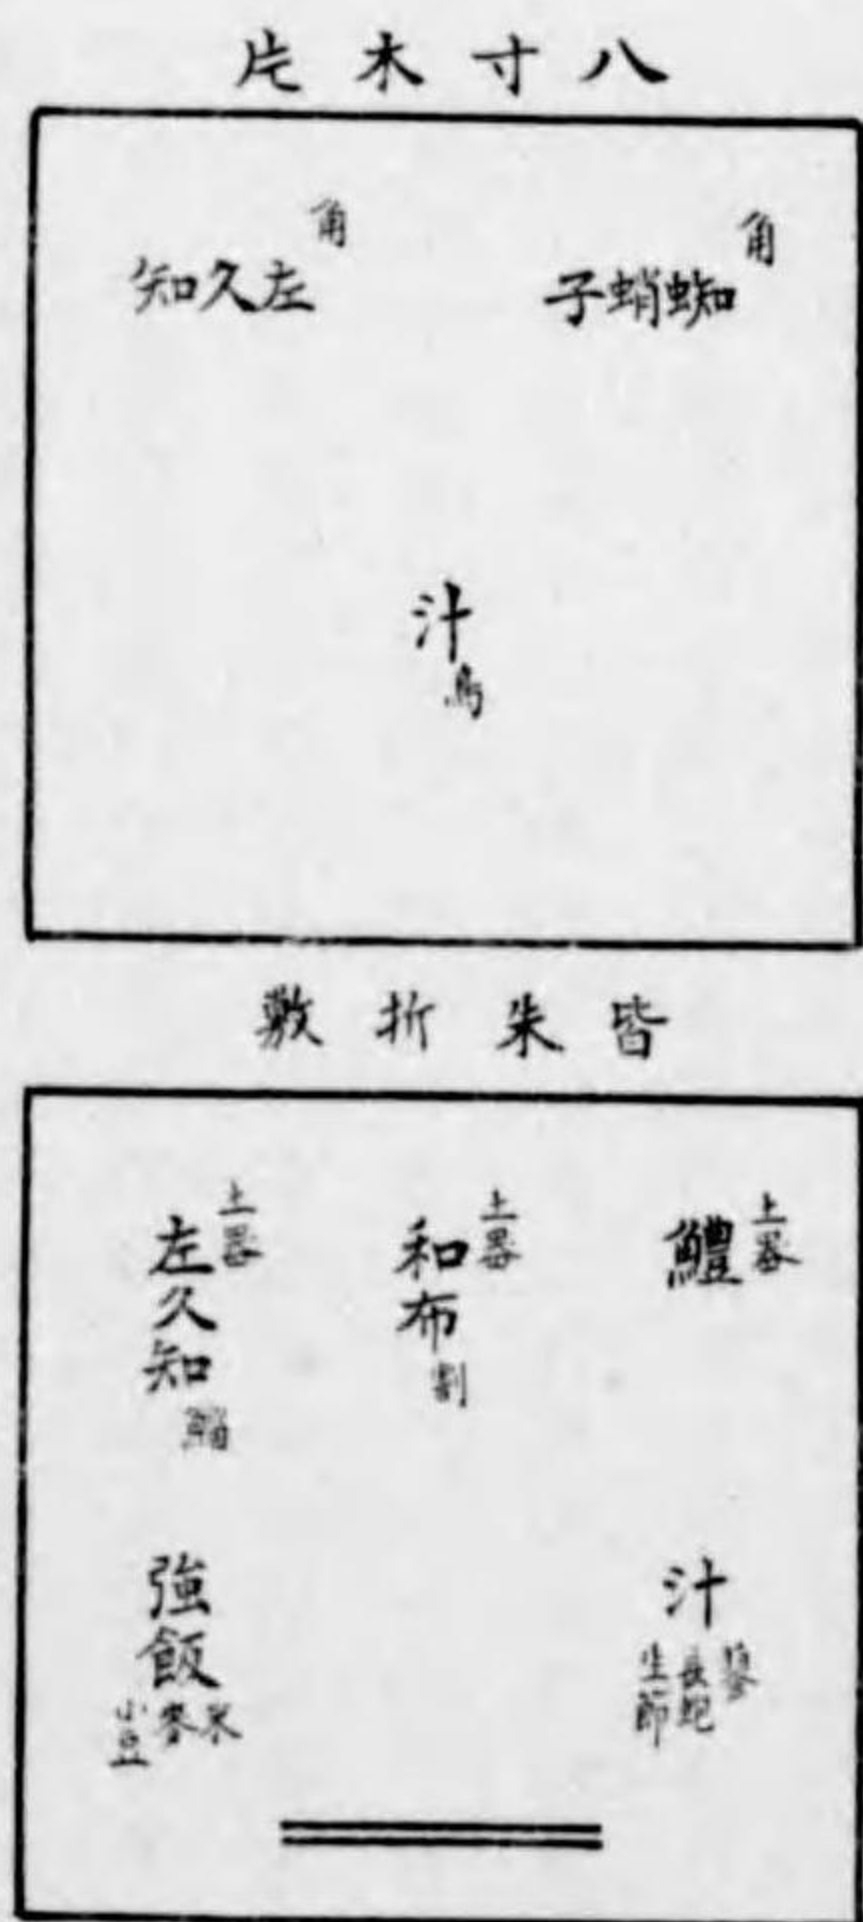 八寸木片
角
蜘蛸子
角
左久知
汁
鳥
皆朱折敷
土器
鱧
土器
和布
割
土器
左久知
鯔
汁
長鮑
生節
強飯
米
麥
小豆